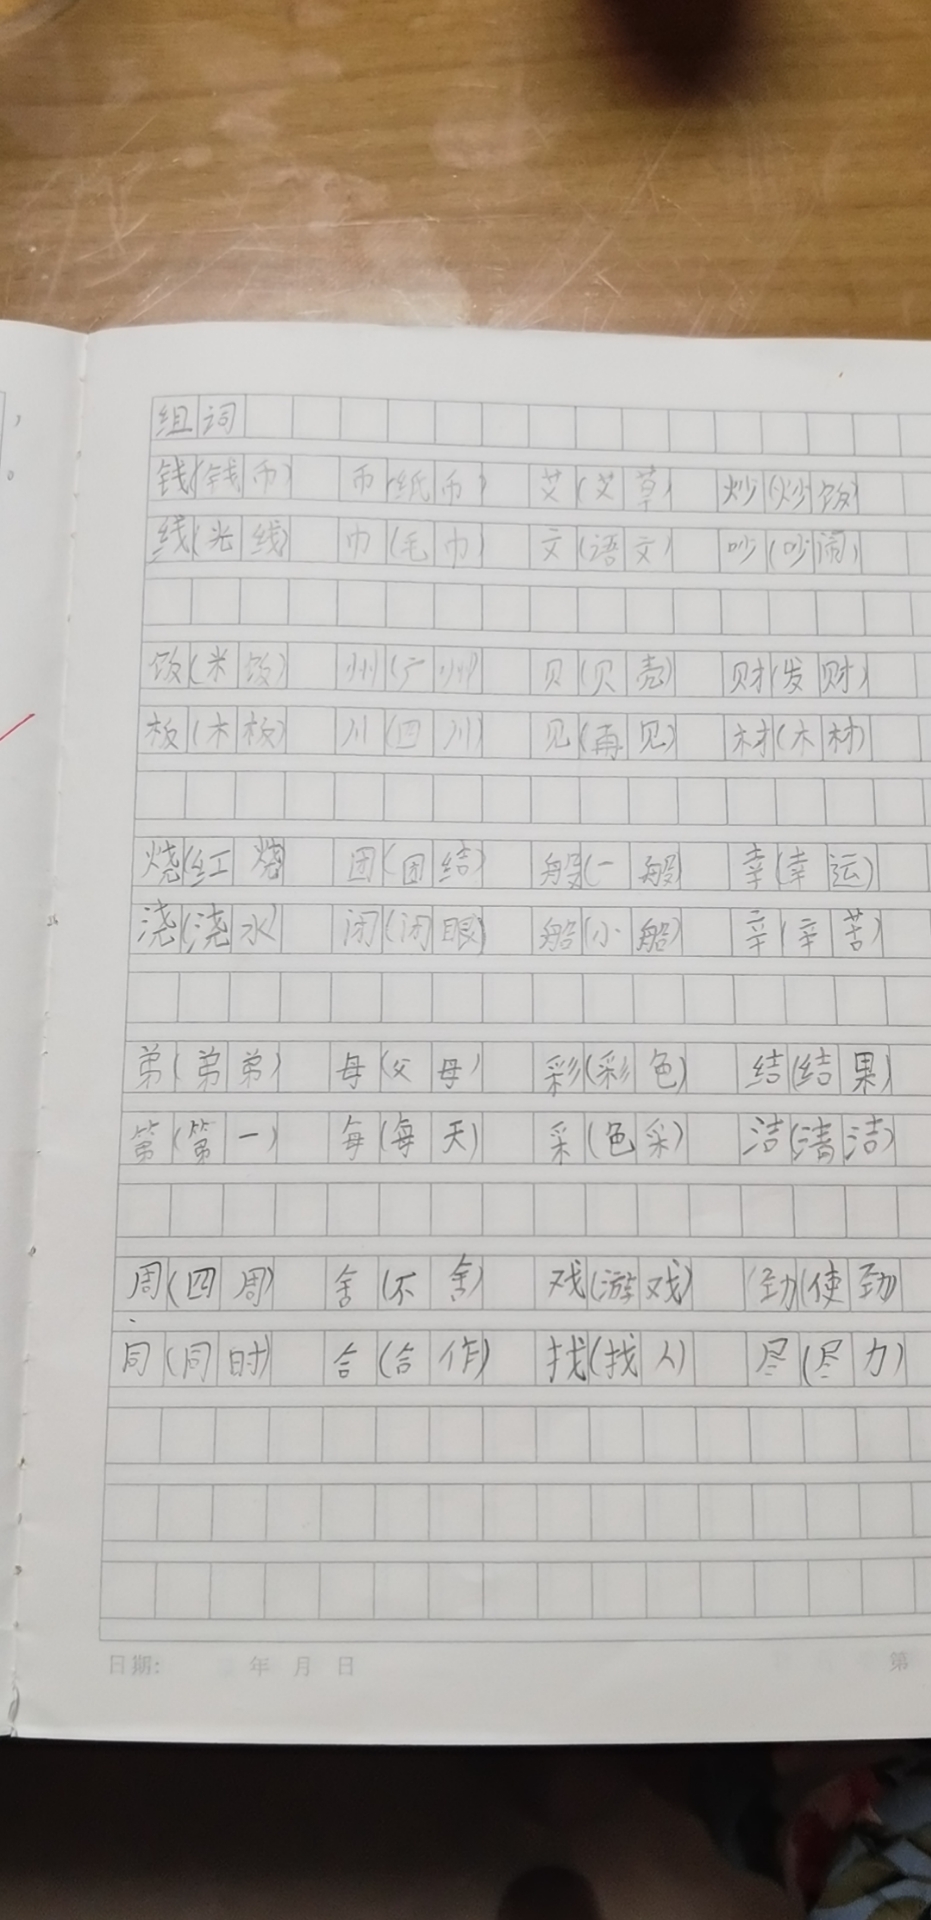 组词
钱(钱币) 币(纸币) 艾(艾草) 炒(炒饭)
线(光线) 巾(毛巾) 文(语文) 吵(吵闹)
饭(米饭) 州(广州) 贝(贝壳) 财(发财)
板(木板) 川(四川) 见(再见) 材(木材)
烧(红烧 团(团结) 般(一般) 幸(幸运)
浇(浇水) 闭(闭眼) 船(小船) 辛(辛苦)
弟(弟弟) 母(父母) 彩(彩色) 结(结果)
第(第一) 每(每天) 采(色采) 洁(清洁)
周(四周) 舍(不舍) 戏(游戏) 劲(使劲)
同(同时) 合(合作) 找(找人) 尽(尽力)
日期: 年 月 日 第